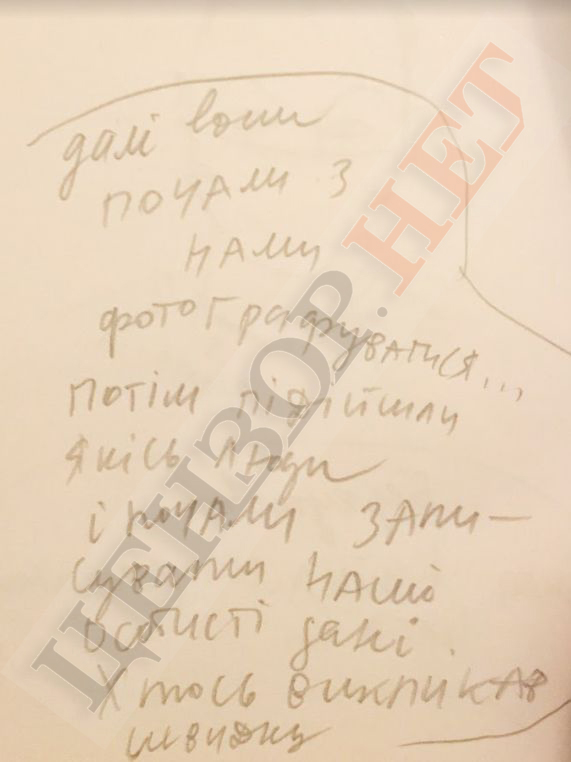 далі вони
почали з
нами
фотографуватися...
потім підійшли
якісь люди
і почали запи-
сувати наші
особисті дані.
Хтось викликав
швидку
ЦЕНЗОР.НЕТ